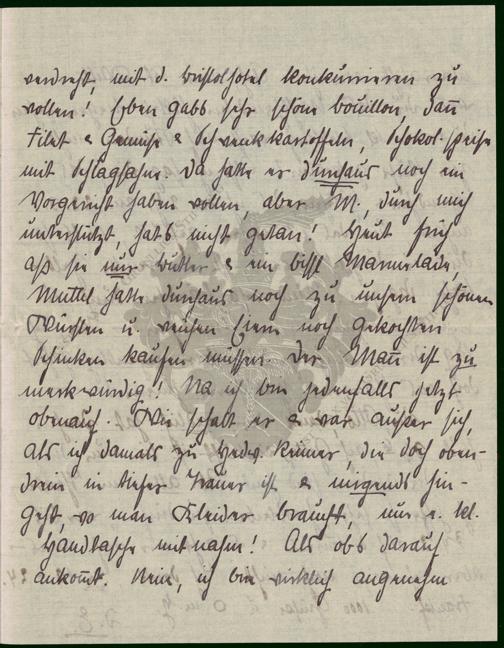 verdreht, mit d. Bristolhotel konkurrieren zu
wollen! Eben gabs sehr schöne bouillon, dan̄
Filet & Gemüse & Schwenkkartoffeln, Schokol.-speise
mit Schlagsahne. Da hatte er durchaus noch ein
Vorgericht haben wollen, aber M., durch mich
unterstützt, hats nicht getan! Heut früh
aß sie nur Butter & ein bissl Marmelade,
Muttel hatte durchaus noch zu unsern schönen
Würsten u. weichen Eiern noch gekochten
Schinken kaufen müssen. Der Man̄ ist zu
merkwürdig! Na ich bin jedenfalls jetzt
obenauf. Wie schalt er & war außer sich,
als ich damals zu Hedw. die doch oben-
drein in tiefer Trauer ist & nirgends hin-
geht, wo man Kleider braucht, nur e. kl.
Handtasche mitnahm! Als obs darauf
ankom̄t. Nein, ich bin wirklich angenehm